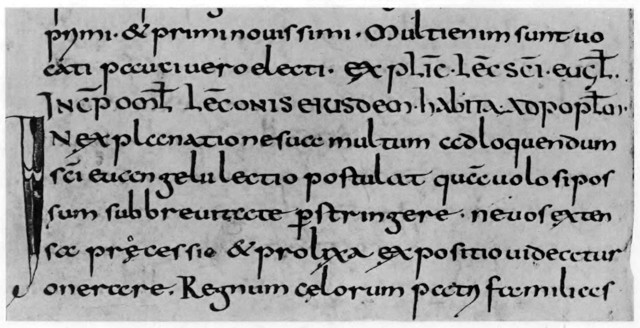 primi · & primi novissimi · Multi enim sunt vo
cati pauci vero electi · expliC̄ · lēc sc̄i · eug̅l ·
Incp̄ omł lēconis eiusdem · habita ad poplm̄ ·
IN explanatione sua multum ad loquendum
sc̄i euangelii lectio postulat quā volo si pos
sum sub brevitate p̱stringere · ne vos exten
sa pręcessio & prolixa expositio videatur
onerare. Regnum celorum patrifamilias